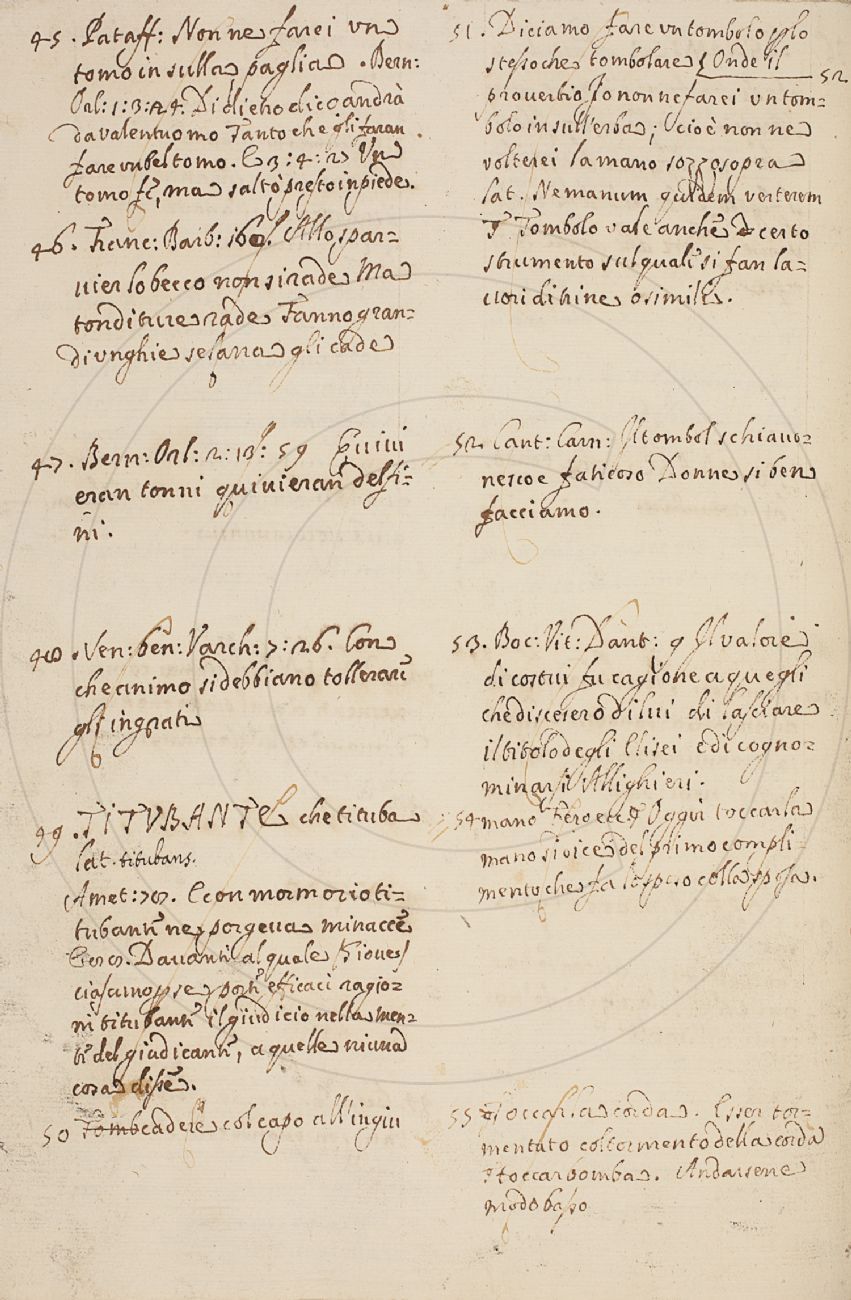 45. Pataff: Non ne farei vn
tomo in sulla paglia. Bern:
Orl: 1: 3: 24. Di dieno dico andrà
da valentuomo Tanto che gli faran
fare vn bel tomo. E 3: 4: 27 Vn
tomo fe, ma saltò presto in piede.
46. Franc: Barb: Allo spar=
uier lo becco non si rade Ma
tonditure rade Fanno gran=
di vnghie se lana gli cade
47. Bern: Orl: 2: 13: 59 Quiui
eran tonni quiui eran delfi=
ni.
48. Ben: Varch: 7: 26. Con
che animo si debbiano tollerare
gli ingrati
49. TITVBANTE che tituba
lat. titubans.
Amet: E con mormorio ti=
tubante ne porgeua minacce
Dauanti al quale (Gioue)
ciascuno per se porte efficaci ragio=
ni titubante il giudicio nella men=
te del giudicante, a quelle niuna
cosa disse.
50 Tomb cadere col capo all'ingiu
51. Diciamo fare vn tombolo p lo
stesso che tombolare Onde il 52.
prouerbio Io non ne farei vn tom=
bolo in sull'erba; cioè non ne
volterei la mano sozzosopra
lat. Ne manum quidem verterem
T Tombolo vale anche certo
strumento sul quale si fan la=
uori di trine o simili.
52. Cant: Carn: Il tombol schiauo=
nesco e faticoso Donne si ben
facciamo.
53. Boc: Vit: Dant: 9 Il valore
di costui fu cagione a quegli
che discesero di lui di lasciare
il titolo degli Elisei e di cogno=
minarsi Allighieri.
54 mano Feroce Oggi toccar la
mano si dice del primo compli=
mento che fa lo sposo colla sposa.
55 Toccar la corda. Esser tor=
mentato col tormento della corda
T toccar bomba. Andarsene
modo basso